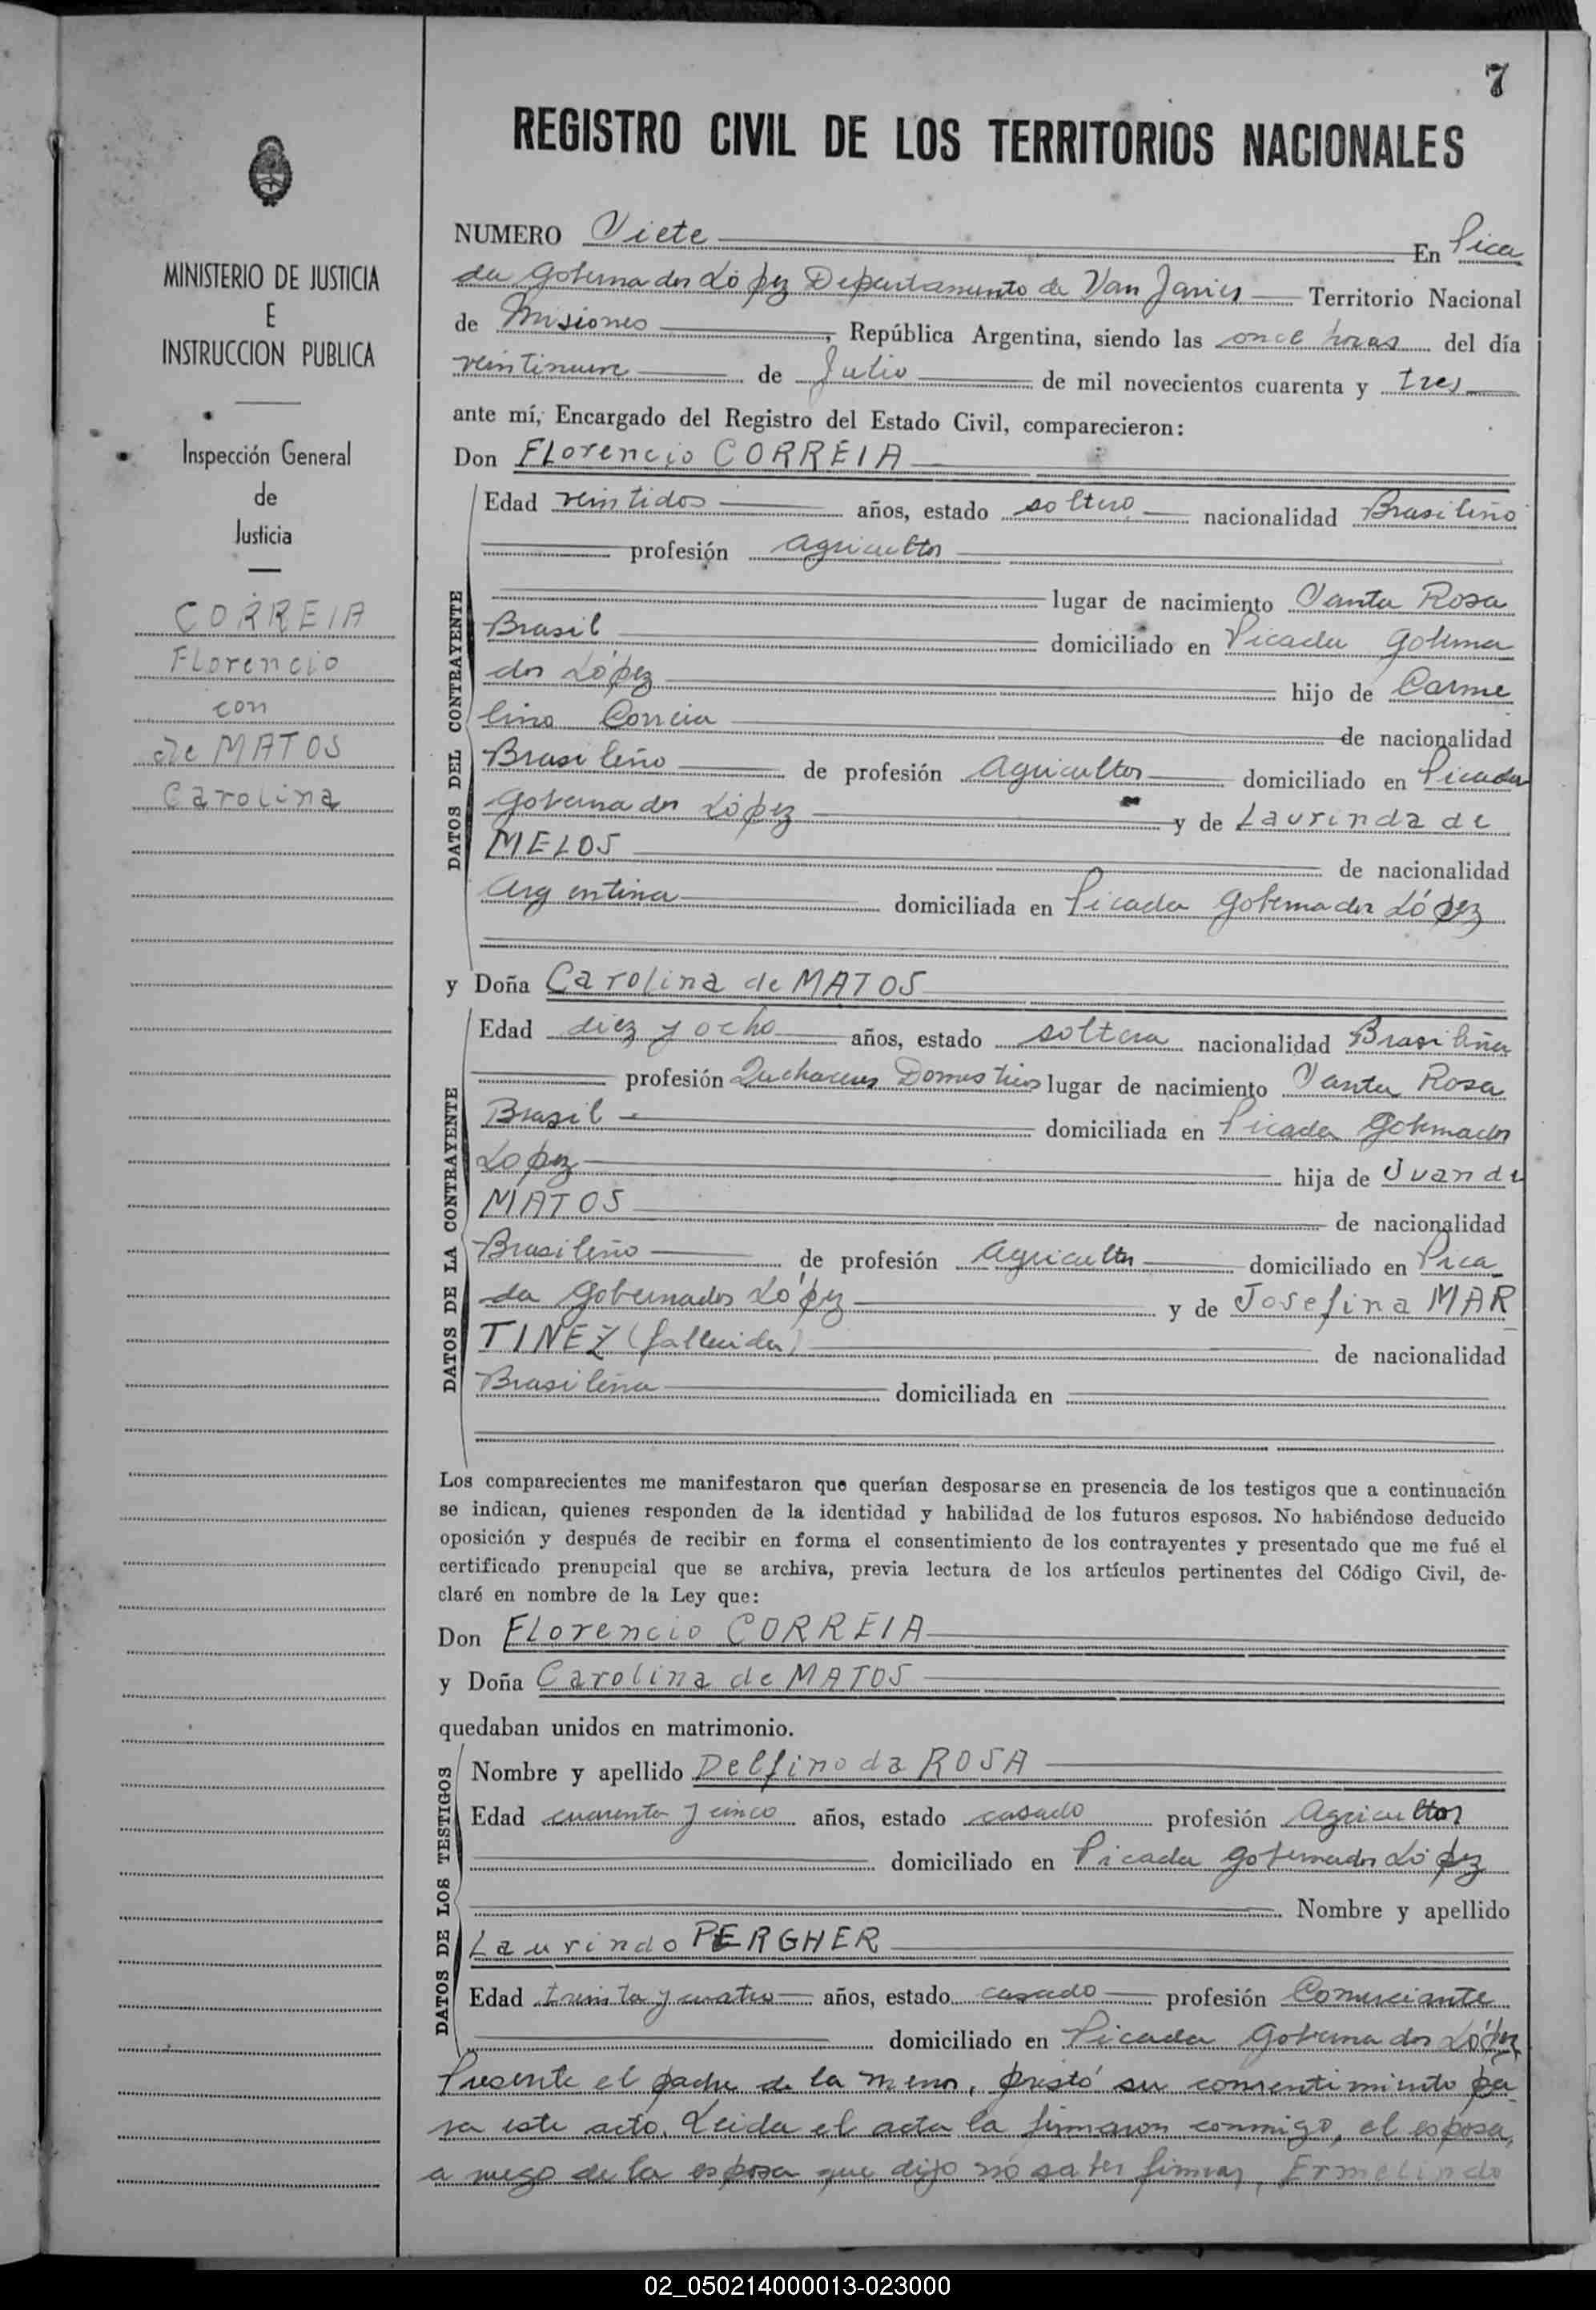 7
REGISTRO CIVIL DE LOS TERRITORIOS NACIONALES
MINISTERIO DE JUSTICIA
E
INSTRUCCION PUBLICA
Inspección General
de
Justicia
CORREIA
Florencio
con
de MATOS
Carolina
NUMERO Siete En Pica
da Gobernador López Departamento de San Javier Territorio Nacional
de Misiones, República Argentina, siendo las once horas del día
veintinueve de Julio de mil novecientos cuarenta y tres
ante mí, Encargado del Registro del Estado Civil, comparecieron:
Don Florencio CORREIA
DATOS DEL CONTRAYENTE
Edad veintidos años, estado soltero nacionalidad Brasileño
profesión agricultor
lugar de nacimiento Santa Rosa
Brasil domiciliado en Picada Goberna
dor López hijo de Carme
lino Correia de nacionalidad
Brasileño de profesión Agricultor domiciliado en Picada
Gobernador López y de Laurinda de
MELOS de nacionalidad
Argentina domiciliada en Picada Gobernador López
y Doña Carolina de MATOS
DATOS DE LA CONTRAYENTE
Edad diez y ocho años, estado soltera nacionalidad Brasileña
profesión Quehaceres Domesticos lugar de nacimiento Santa Rosa
Brasil domiciliada en Picada Gobernador
Lopez hija de Juan de
MATOS de nacionalidad
Brasileño de profesión Agricultor domiciliado en Pica
da Gobernador López y de Josefina MAR
TINEZ (fallecida) de nacionalidad
Brasileña domiciliada en
Los comparecientes me manifestaron que querían desposarse en presencia de los testigos que a continuación
se indican, quienes responden de la identidad y habilidad de los futuros esposos. No habiéndose deducido
oposición y después de recibir en forma el consentimiento de los contrayentes y presentado que me fué el
certificado prenupcial que se archiva, previa lectura de los artículos pertinentes del Código Civil, de-
claré en nombre de la Ley que:
Don Florencio CORREIA
y Doña Carolina de MATOS
quedaban unidos en matrimonio.
DATOS DE LOS TESTIGOS
Nombre y apellido Delfino da ROSA
Edad cuarenta y cinco años, estado casado profesión Agricultor
domiciliado en Picada Gobernador López
Nombre y apellido
Laurindo PERGHER
Edad treinta y cuatro años, estado casado profesión Comerciante
domiciliado en Picada Gobernador López
Presente el padre de la menor, prestó su consentimiento pa
ra este acto. Leida el acta la firmaron conmigo, el esposo,
a ruego de la esposa que dijo no saber firmar, Ermelindo
02_050214000013-023000